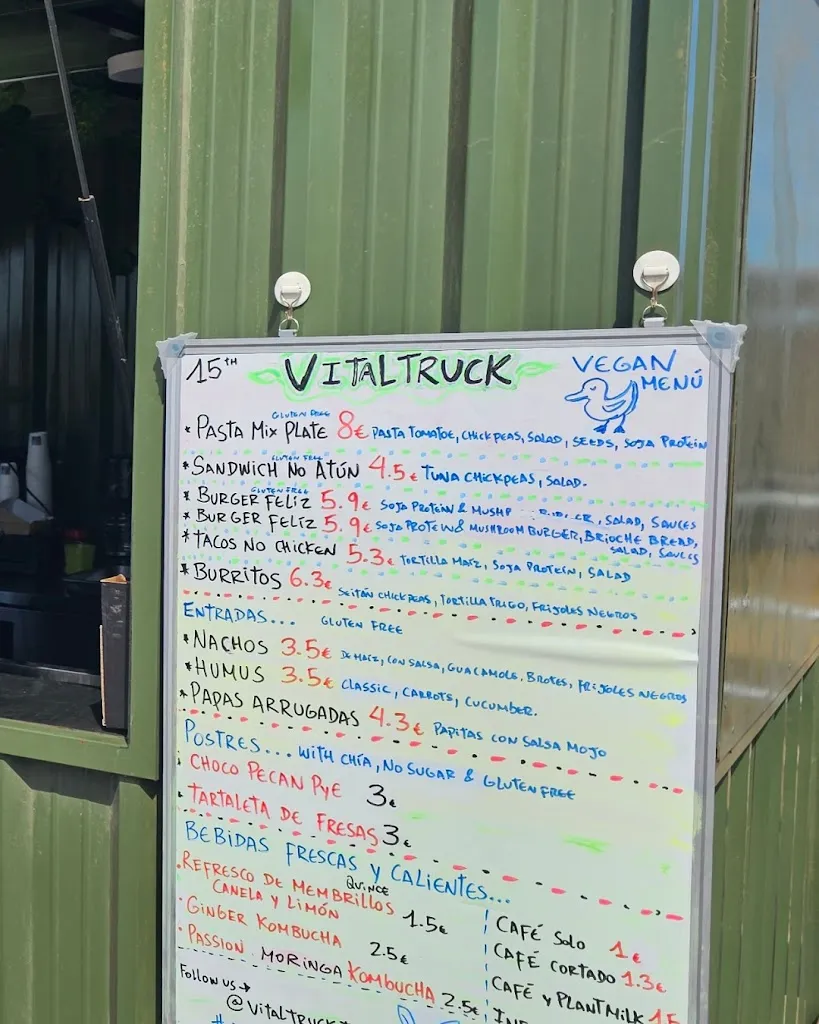 15TH VITALTRUCK VEGAN MENÚ
GLUTEN FREE
* PASTA MIX PLATE 8€ PASTA TOMATOE, CHICKPEAS, SALAD, SEEDS, SOJA PROTEÍN
GLUTEN FREE
* SANDWICH NO ATÚN 4.5€ TUNA CHICKPEAS, SALAD.
GLUTEN FREE
* BURGER FELIZ 5.9€ SOJA PROTEÍN & MUSHP SALAD, SAUCES
* BURGER FELIZ 5.9€ SOJA PROTEIN & MUSHROOM BURGER, BRIOCHE BREAD,
SALAD, SAUCES
* TACOS NO CHICKEN 5.3€ TORTILLA MAÍZ, SOJA PROTEÍN, SALAD
* BURRITOS 6.3€ SEITÁN CHICKPEAS, TORTILLA TRIGO, FRIJOLES NEGROS
ENTRADAS... GLUTEN FREE
* NACHOS 3.5€ DE MAÍZ, CON SALSA, GUACAMOLE, BROTES, FRIJOLES NEGROS
* HUMUS 3.5€ CLASSIC, CARROTS, CUCUMBER.
* PAPAS ARRUGADAS 4.3€ PAPITAS CON SALSA MOJO
POSTRES... WITH CHÍA, NO SUGAR & GLUTEN FREE
· CHOCO PECAN PYE 3€
· TARTALETA DE FRESAS 3€
BEBIDAS FRESCAS Y CALIENTES...
· REFRESCO DE MEMBRILLOS QUINCE
CANELA Y LIMÓN 1.5€
· GINGER KOMBUCHA 2.5€
· PASSION MORINGA KOMBUCHA 2.5€
CAFÉ SOLO 1€
CAFÉ CORTADO 1.3€
CAFÉ Y PLANTMILK 1.5
Follow us →
@VITALTRUCK